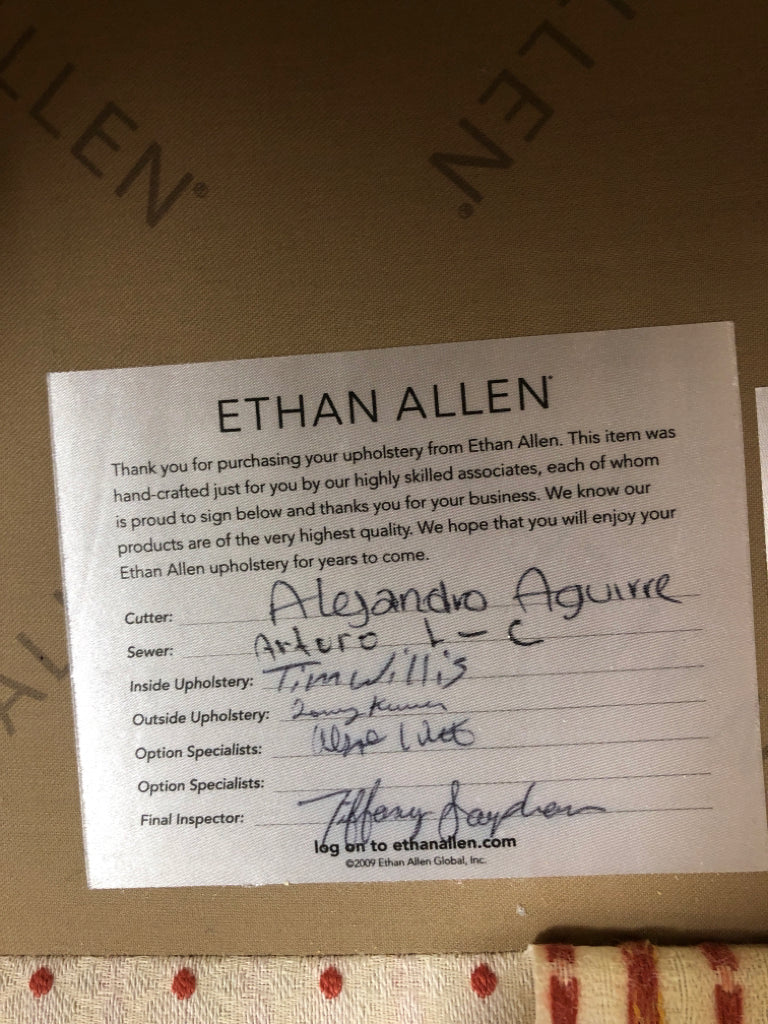 LLEN®
LLEN®
ETHAN ALLEN®
Thank you for purchasing your upholstery from Ethan Allen. This item was
hand-crafted just for you by our highly skilled associates, each of whom
is proud to sign below and thanks you for your business. We know our
products are of the very highest quality. We hope that you will enjoy your
Ethan Allen upholstery for years to come.
Cutter: Alejandro Aguirre
Sewer: Arturo L-C
Inside Upholstery: Tim Willis
Outside Upholstery:
Option Specialists:
Option Specialists:
Final Inspector: Tiffany
log on to ethanallen.com
©2009 Ethan Allen Global, Inc.
AL